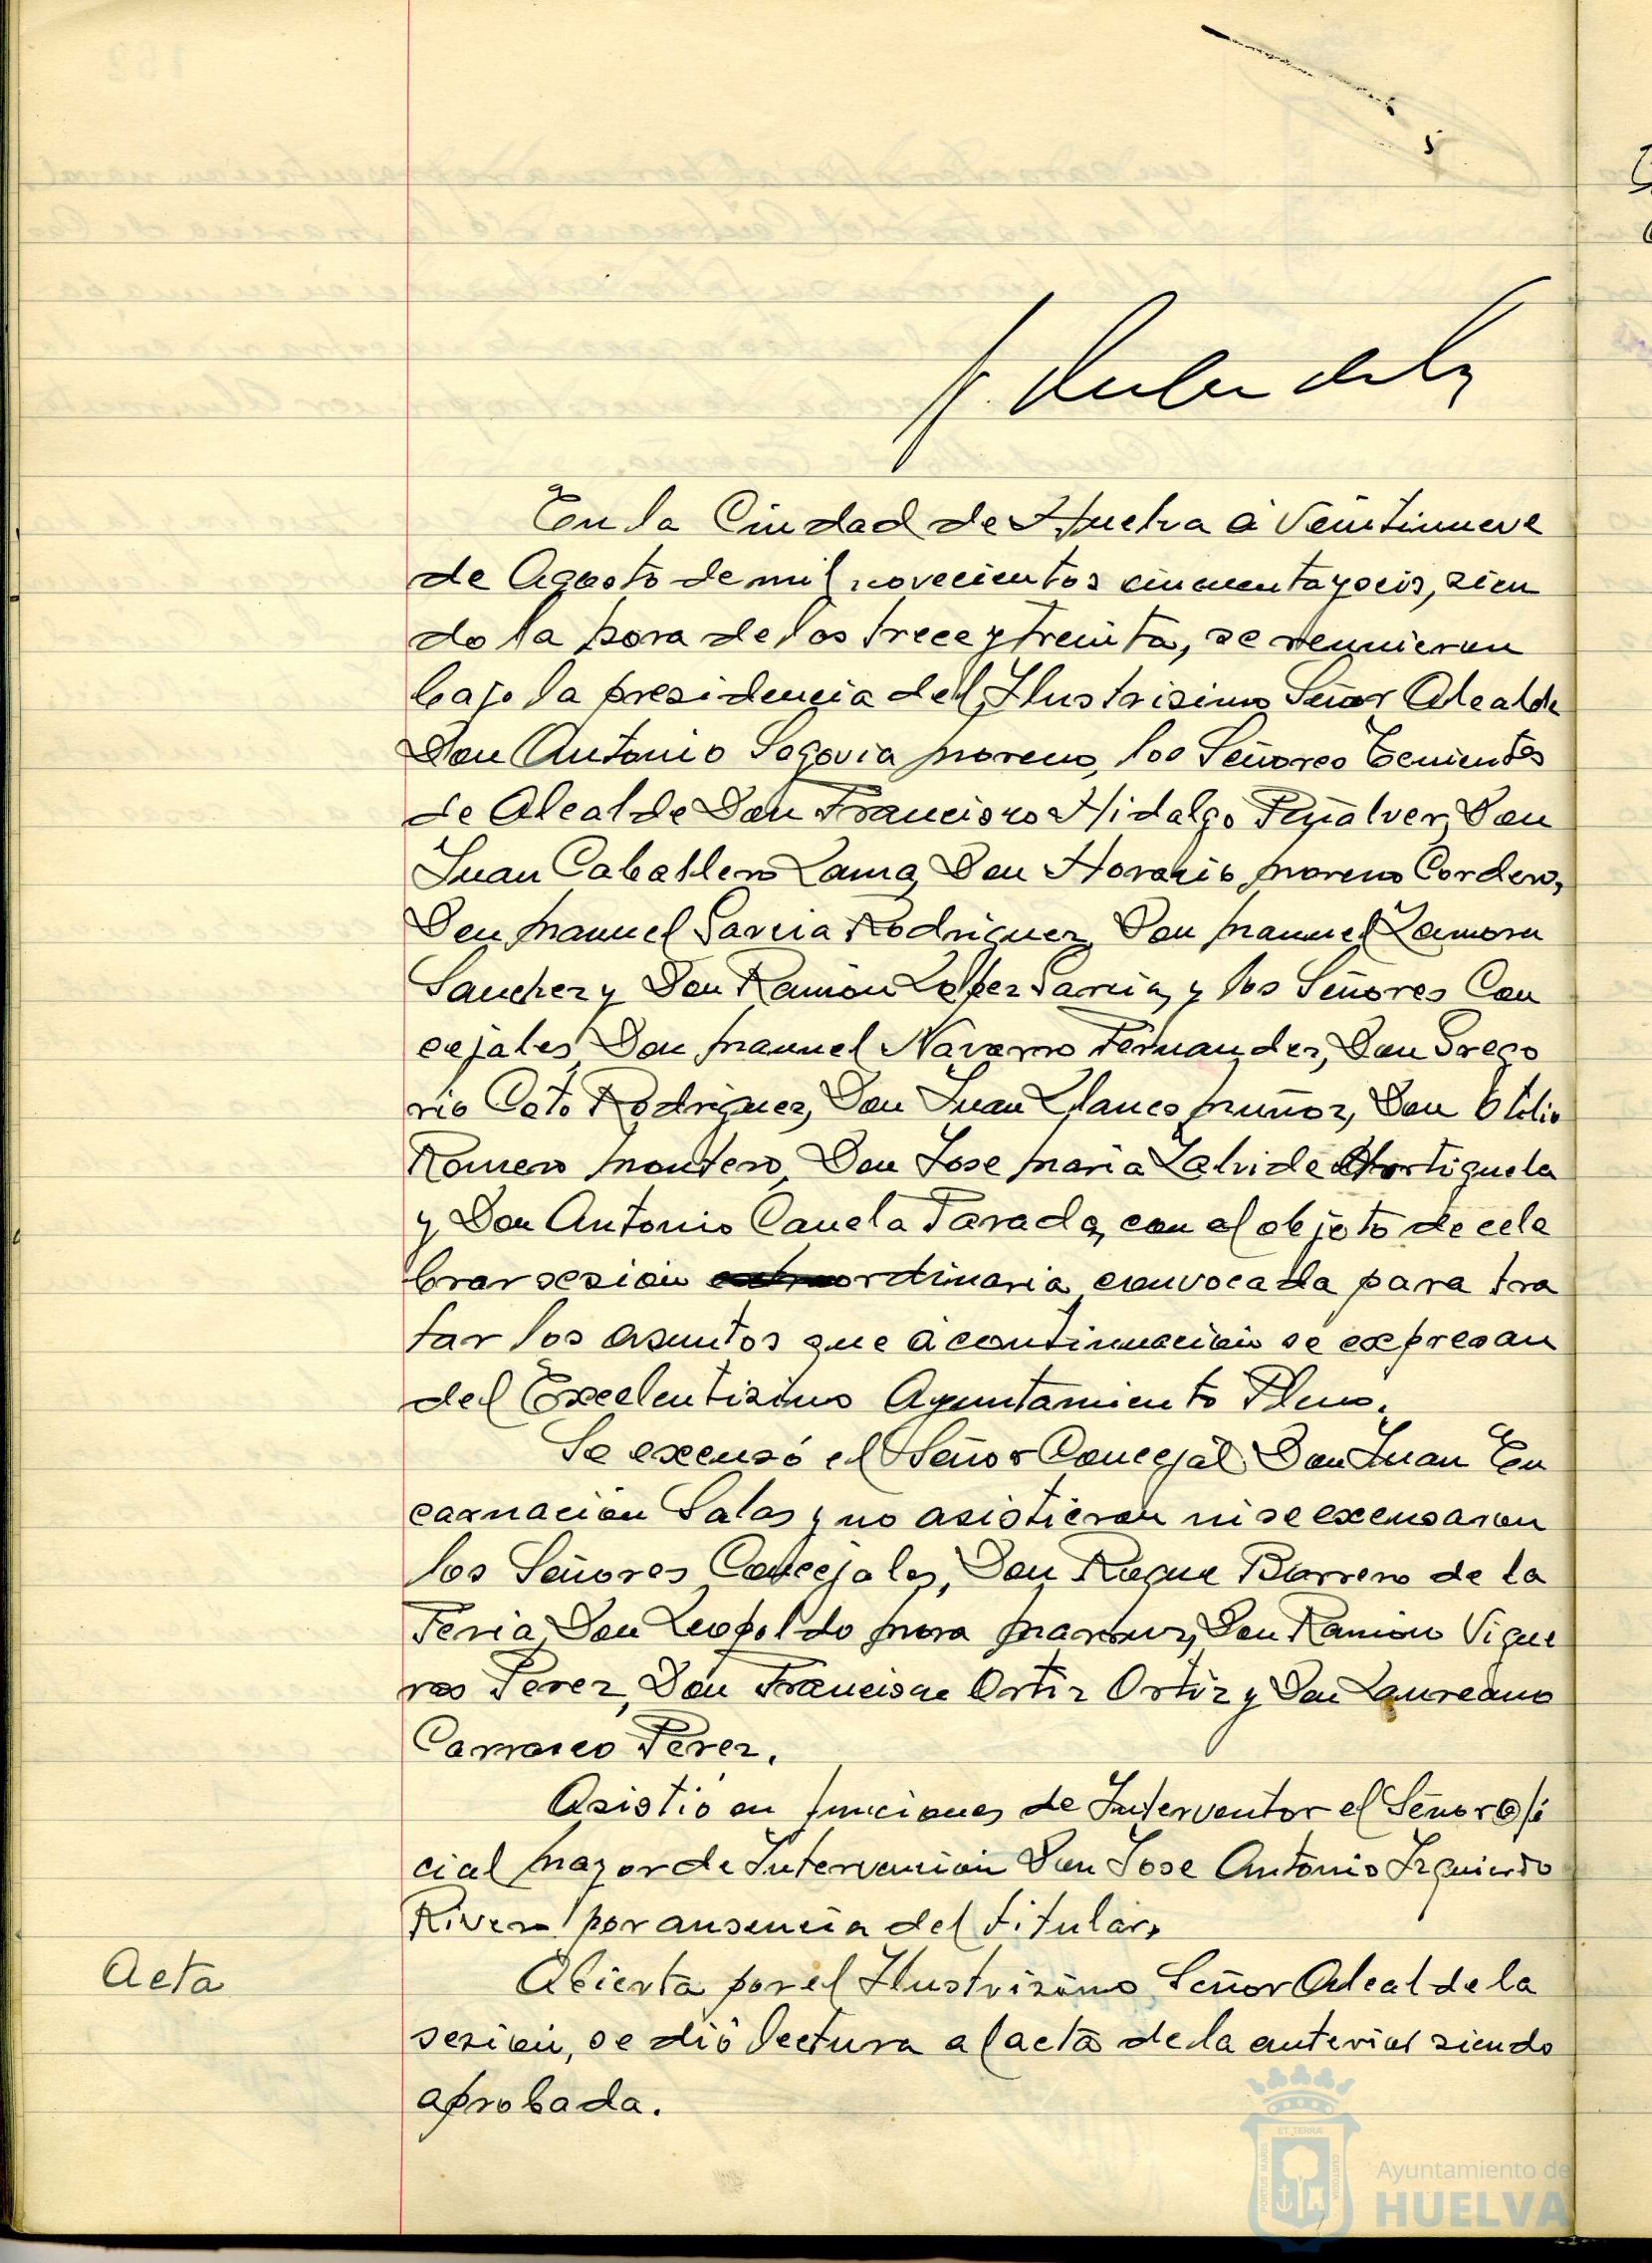 En la Ciudad de Huelva a veintinueve
de Agosto de mil novecientos cincuenta y seis, sien
do la hora de las trece y treinta, se reunieron
bajo la presidencia del Ilustrisimo Señor Alcalde
Don Antonio Segovia Moreno, los Señores Tenientes
de Alcalde Don Francisco Hidalgo Peñalver, Don
Juan Caballero Lama, Don Horacio Moreno Cordero,
Don Manuel Garcia Rodriguez, Don Manuel Zamora
Sanchez y Don Ramón Lopez Garcia, y los Señores Con
cejales, Don Manuel Navarro Fernandez, Don Grego
rio Coto Rodriguez, Don Juan Llanes Muñoz, Don Otilio
Romero Montero, Don Jose Maria Zalvide Hortiguela
y Don Antonio Canela Parada, con el objeto de cele
brar sesion ordinaria convocada para tra
tar los asuntos que a continuacion se expresan
del Excelentisimo Ayuntamiento Pleno.
Se excusó el Señor Concejal Don Juan En
carnacion Salas y no asistieron ni se excusaron
los Señores Concejales, Don Roque Barrero de la
Feria, Don Leopoldo Mora Don Ramon Vigue
ras Perez, Don Francisco Ortiz Ortiz y Don Laureano
Carrasco Perez.
Asistió en funciones de Interventor el Señor Ofi
cial Mayor de Intervencion Don Jose Antonio Izquierdo
Rivero por ausencia del titular.
Acta
Abierta por el Ilustrisimo Señor Alcalde la
sesion, se dió lectura al acta de la anterior siendo
aprobada.
PORTUS MARIS
ET TERRÆ
CUSTODIA
Ayuntamiento de
HUELVA